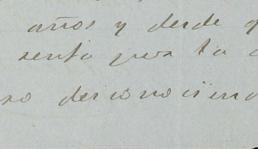 años y desde q
senta para la
so desconociend